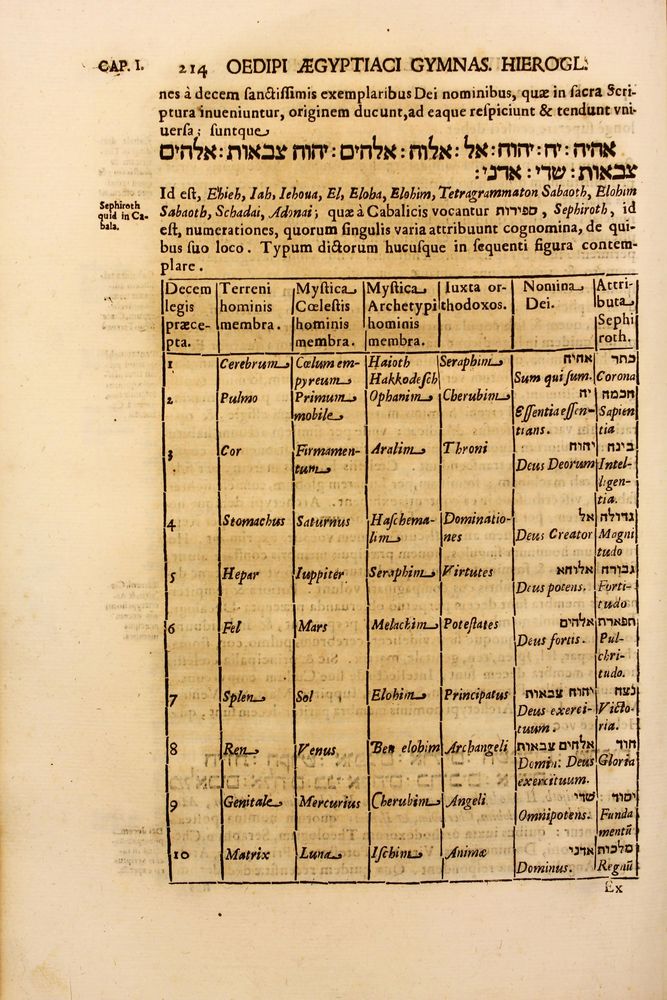 CAP. I. 214 OEDIPI ÆGYPTIACI GYMNAS. HIEROGL.
nes à decem sanctissimis exemplaribus Dei nominibus, quæ in sacra Scri-
ptura inueniuntur, originem ducunt, ad eaque respiciunt & tendunt vni-
uersa; suntque
אהיה : יה : יהוה : אל : אלוה : אלהים : יהוה צבאות : אלהים
צבאות : שדי : אדני :
Id est, Ehieh, Iah, Iehoua, El, Eloha, Elohim, Tetragrammaton Sabaoth, Elohim
Sephiroth
quid in Ca-
bala.
Sabaoth, Schadai, Adonai; quæ à Cabalicis vocantur ספירות, Sephiroth, id
est, numerationes, quorum singulis varia attribuunt cognomina, de qui-
bus suo loco. Typum dictorum hucusque in sequenti figura contem-
plare.
Decem legis præce-pta. | Terreni hominis membra. | Mystica Cœlestis hominis membra. | Mystica Archetypi hominis membra. | Iuxta or-thodoxos. | Nomina Dei. | Attri-buta Sephi roth.
1 Cerebrum Cœlum em-pyreum Haioth Hakkodesch Seraphim אהיה Sum qui sum. כתר Corona
2 Pulmo Primum mobile Ophanim Cherubim יה Essentia essen-tians. חכמה Sapien tia
3 Cor Firmamen-tum Aralim Throni יהוה Deus Deorum בינה Intel-ligen-tia.
4 Stomachus Saturnus Haschema-lim Dominatio-nes אל Deus Creator גדולה Magni tudo
5 Hepar Iuppiter Seraphim Virtutes אלוהא Deus potens. גבורה Forti-tudo
6 Fel Mars Melachim Potestates אלהים Deus fortis. תפארת Pul-chri-tudo.
7 Splen Sol Elohim Principatus יהוה צבאות Deus exerci-tuum. נצח Victo-ria.
8 Ren Venus Ben elohim Archangeli אלהים צבאות Domin: Deus exercituum. הוד Gloria
9 Genitale Mercurius Cherubim Angeli שדי Omnipotens. יסוד Funda mentũ
10 Matrix Luna Ischim Animæ אדני Dominus. מלכות Regnũ
Ex